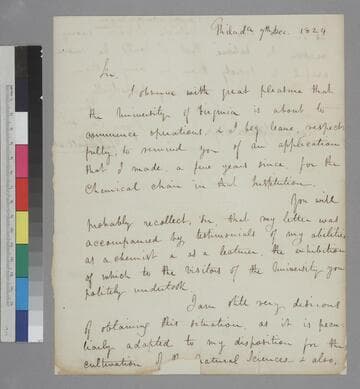 Philad.a 7th Dec. 1824
Sir,
I observe with great pleasure that
the University of Virginia is about to
commence operations, & I beg leave, respect
fully, to remind you of an application
that I made, a few years since for the
Chemical chair in that Institution.
You will
probably recollect, Sir, that my letter was
accompanied by testimonials of my abilities
as a chemist & as a lecturer, the exhibition
of which to the visitors of the University you
politely undertook.
I am still very desirous
of obtaining this situation, as it is pecu
liarly adapted to my disposition for the
cultivation of the natural Sciences & also,